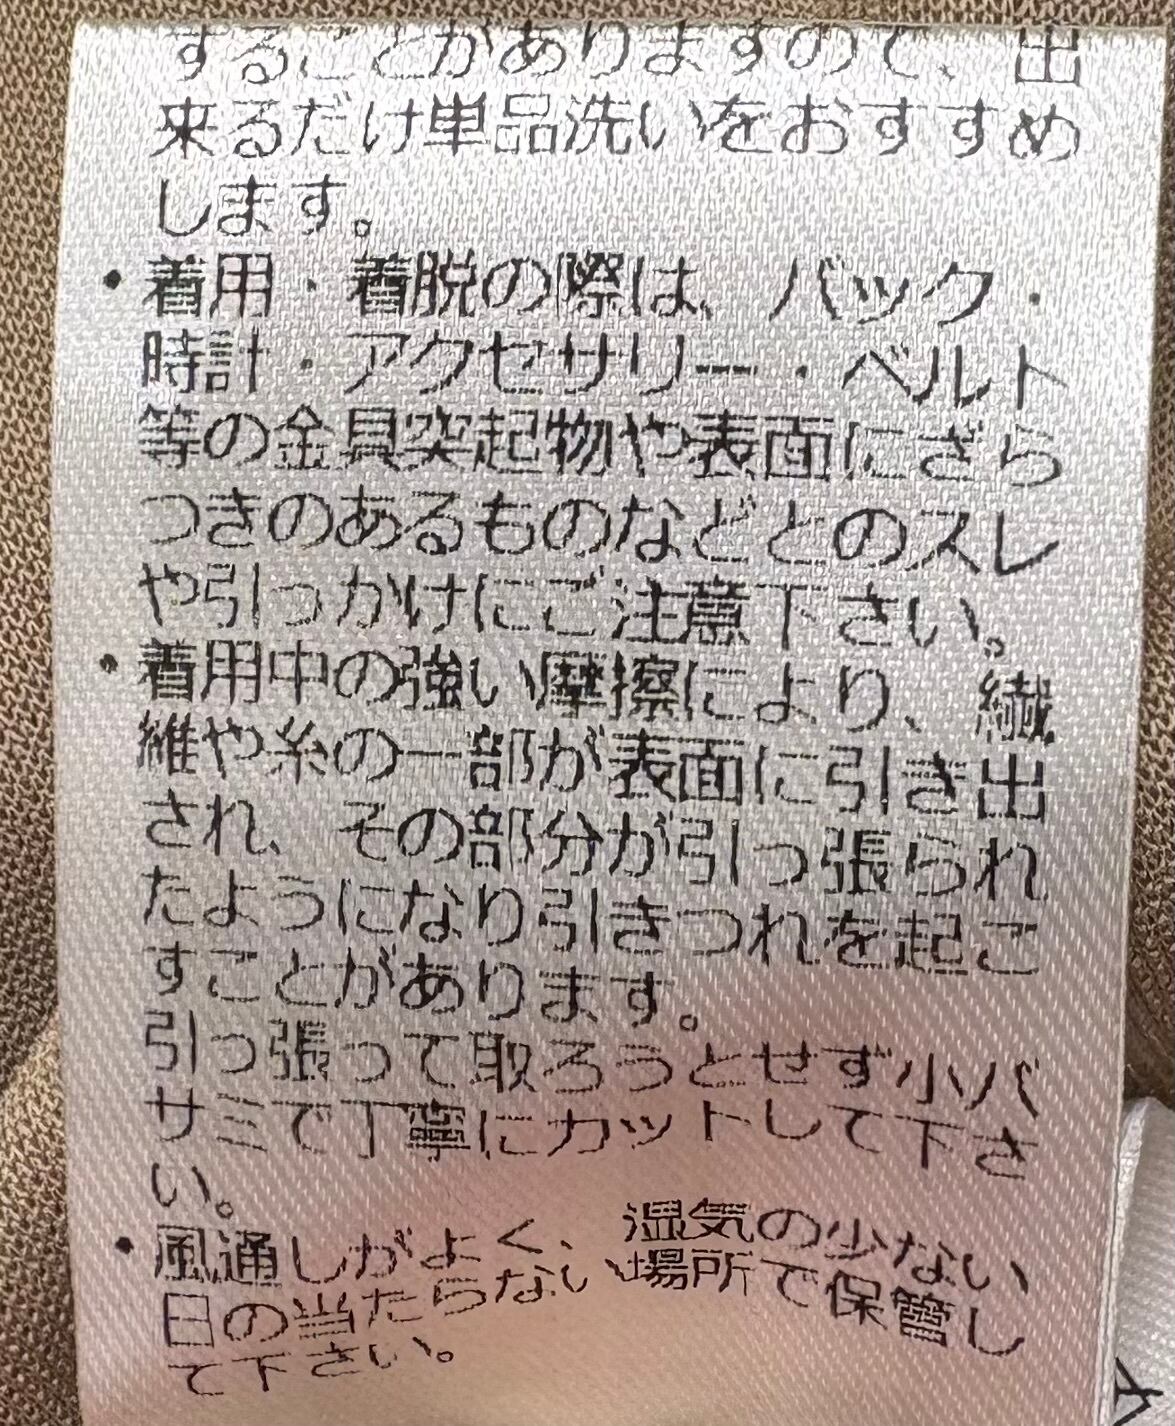 することがありますので、出
来るだけ単品洗いをおすすめ
します。
・着用・着脱の際は、バック・
時計・アクセサリー・ベルト
等の金具突起物や表面にざら
つきのあるものなどとのスレ
や引っかけにご注意下さい。
・着用中の強い摩擦により、繊
維や糸の一部が表面に引き出
され、その部分が引っ張られ
たようになり引きつれを起こ
すことがあります。
引っ張って取ろうとせず小バ
サミで丁寧にカットして下さ
い。
・風通しがよく、湿気の少ない
日の当たらない場所で保管し
て下さい。